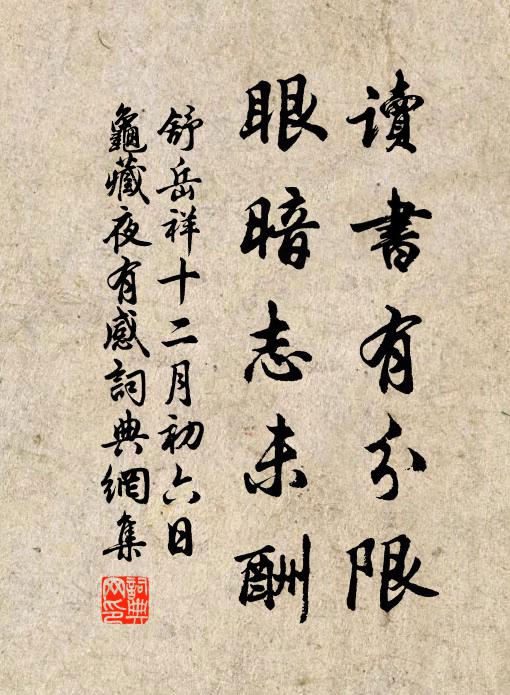 讀書有分限
眼暗志未酬
舒岳祥十二月初六日
龜藏夜有感詞典網集
詞典網印